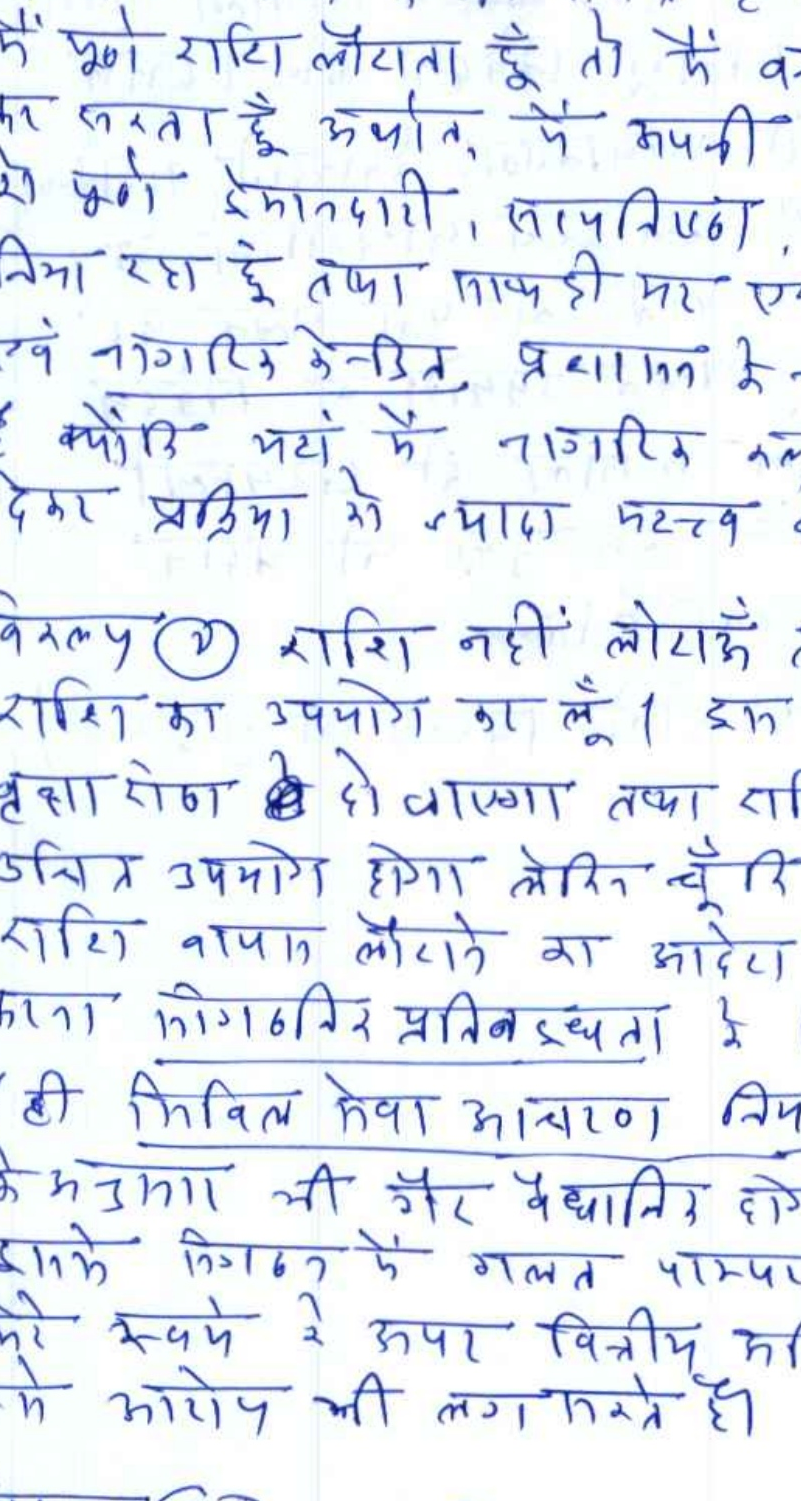 मैं पूर्ण राशि लौटाता हूँ तो मैं
कर सकता हूँ अर्थात, मैं अपनी
को पूर्ण ईमानदारी, सत्यनिष्ठा,
निभा रहा हूँ तथा साथ ही यह
एवं नागरिक केन्द्रित प्रशासन के
है क्योंकि यहां मैं नागरिक
देकर प्रक्रिया को ज्यादा महत्त्व
विकल्प (2) राशि नहीं लौटाऊँ
राशि का उपयोग कर लूँ। इस
वृक्षारोपण हो जाएगा तथा
उचित उपयोग होगा लेकिन चूँकि
राशि वापस लौटाने का आदेश
करना संगठनिक प्रतिबद्धता के
ही सिविल सेवा आचरण
के अनुसार भी गैर वैधानिक
इससे संगठन में गलत
मेरे स्वयं के ऊपर वित्तीय
के आरोप भी लग सकते है।